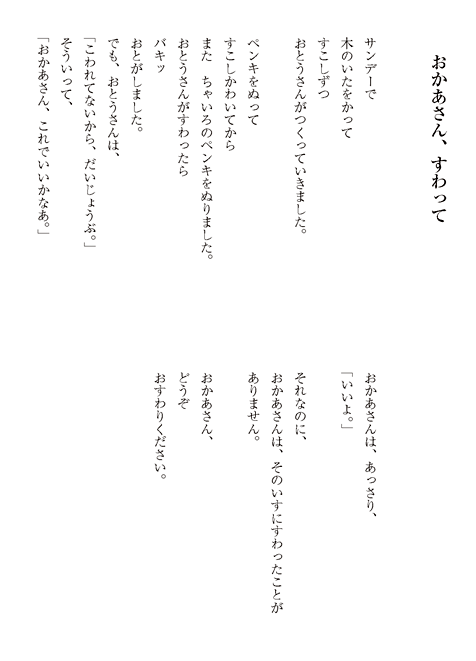 おかあさん、すわって
サンデーで
木のいたをかって
すこしずつ
おとうさんがつくっていきました。
ペンキをぬって
すこしかわいてから
また　ちゃいろのペンキをぬりました。
おとうさんがすわったら
バキッ
おとがしました。
でも、おとうさんは、
「こわれてないから、だいじょうぶ。」
そういって、
「おかあさん、これでいいかなあ。」
おかあさんは、あっさり、
「いいよ。」
それなのに、
おかあさんは、そのいすにすわったことが
ありません。
おかあさん、
どうぞ
おすわりください。